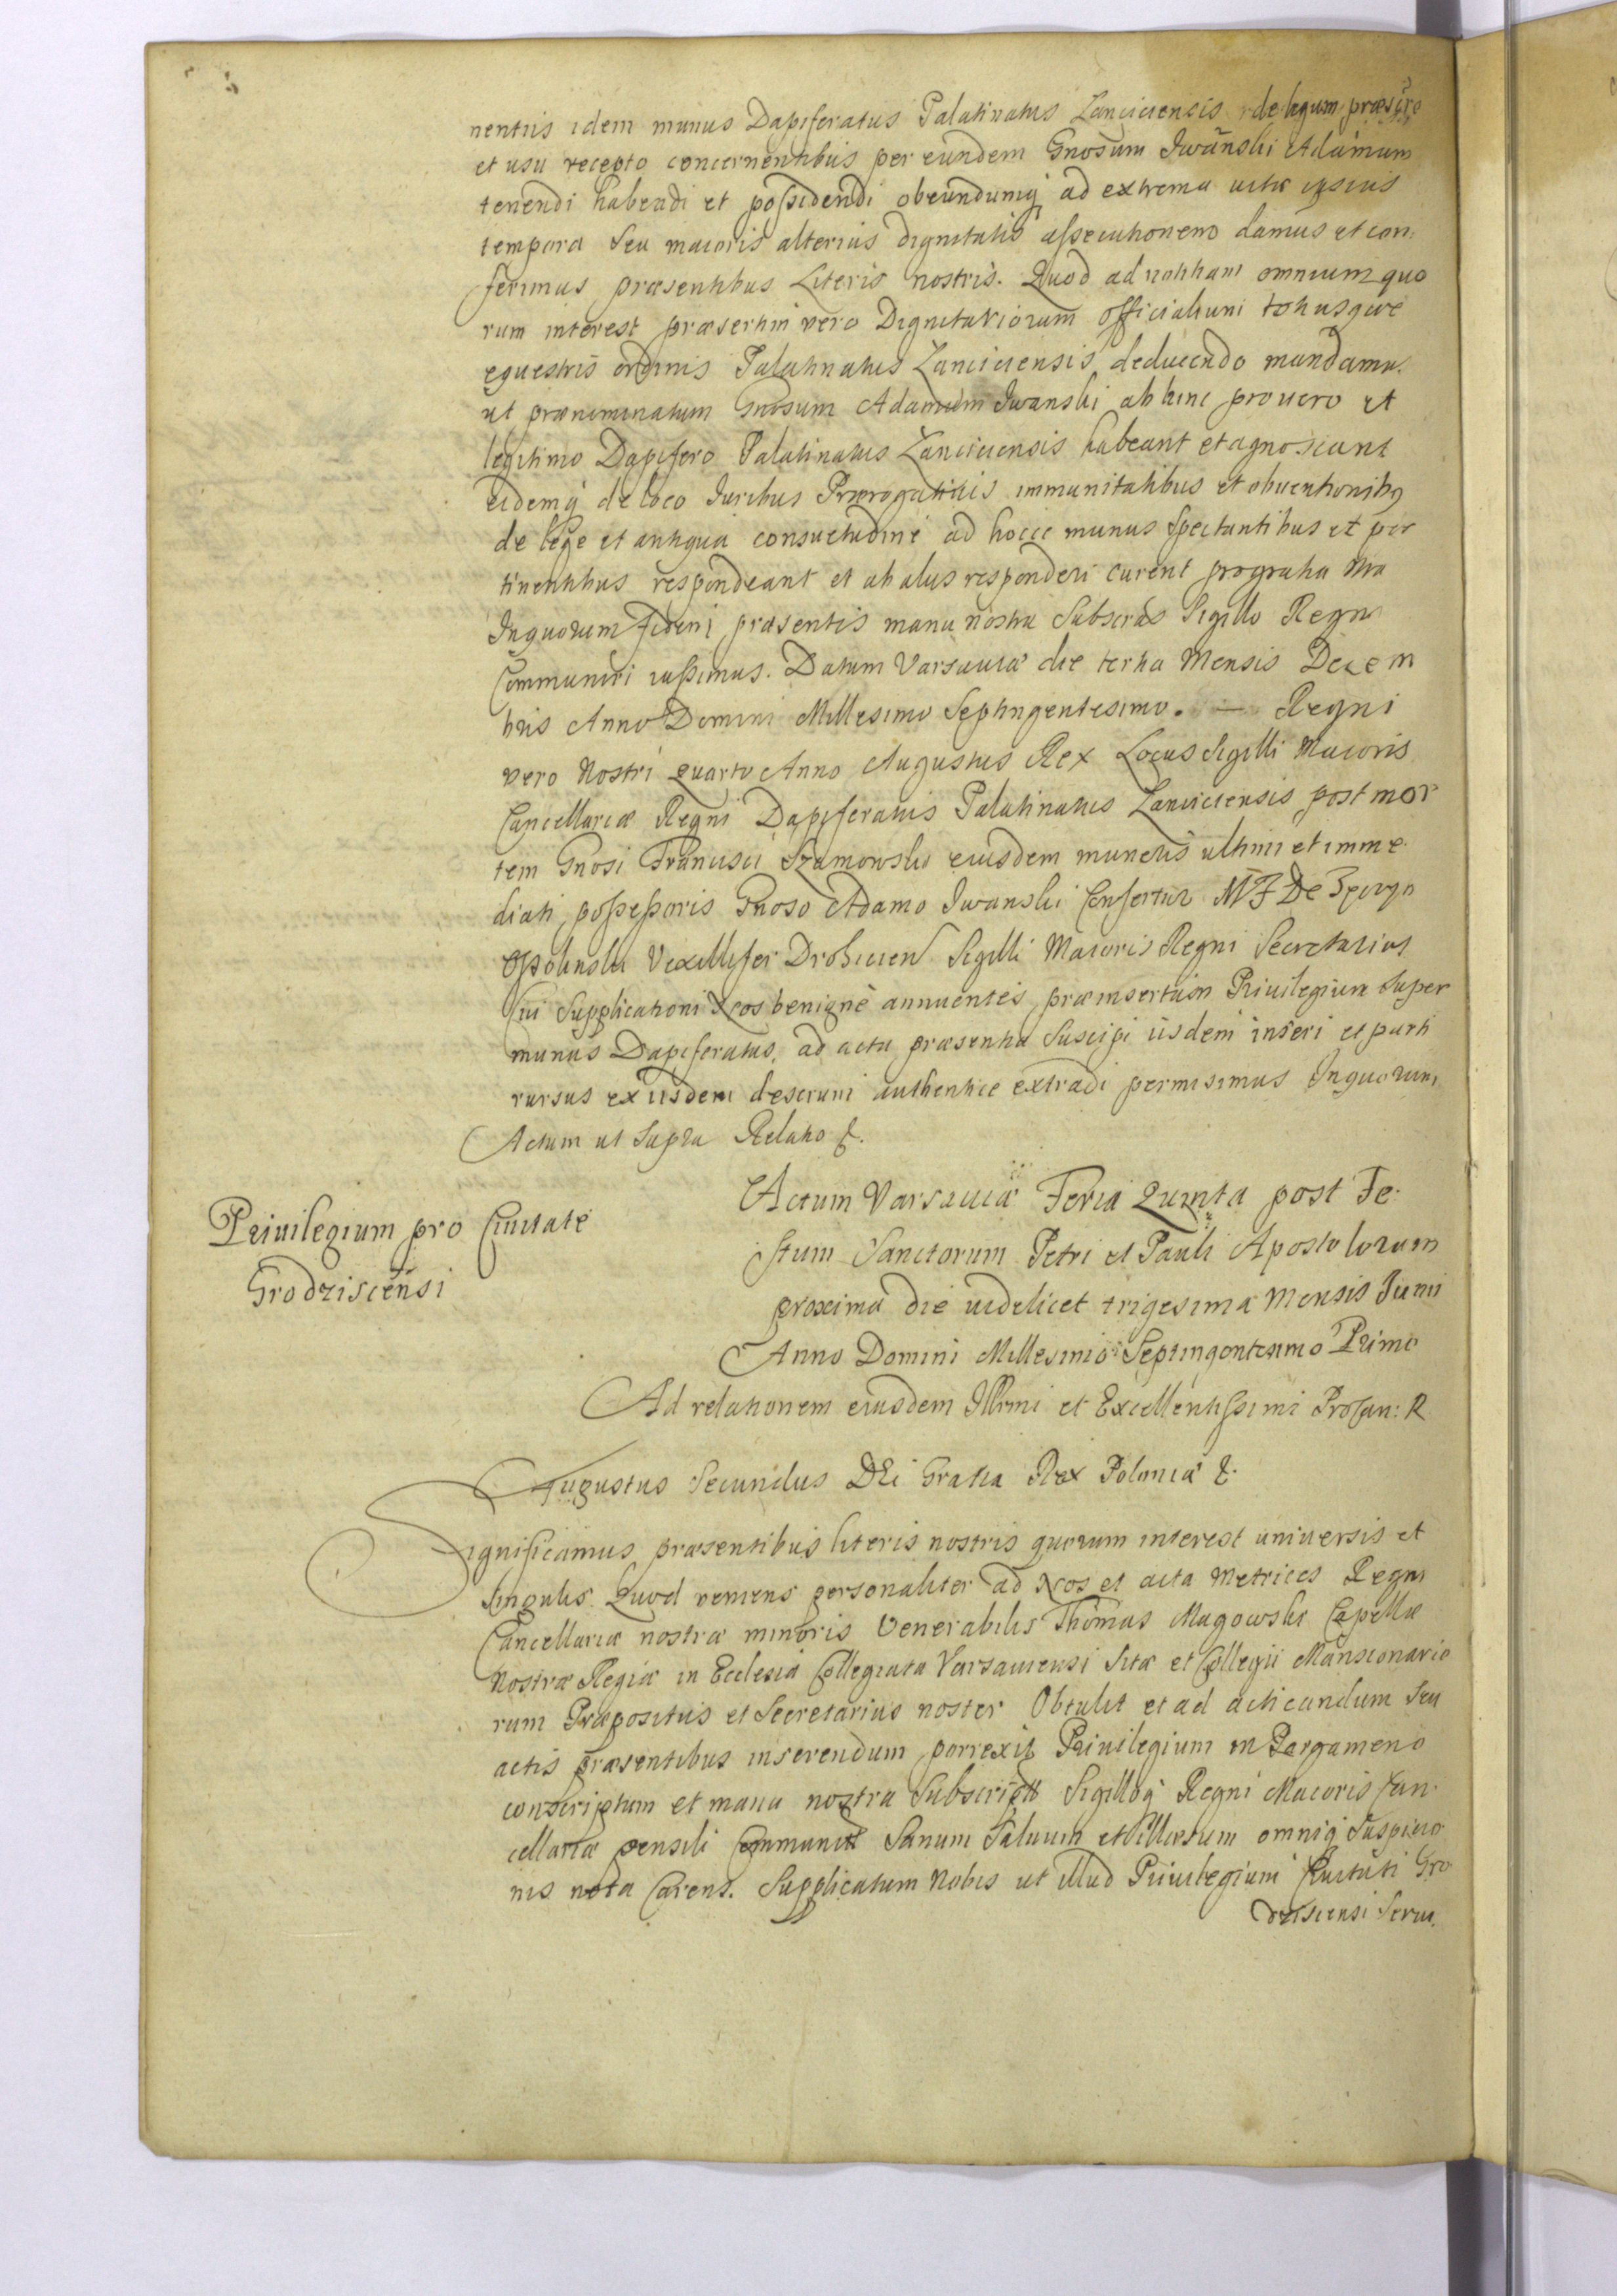 nentiis idem munus Dapiferatus Palatinatus Lanciciensis de legum præscri
et usu recepto concernentibus per eundem Gnosum Iwanski Adamum
tenendi habendi et possidendi obeundumq ad extrema uitæ ipsius
tempora seu maioris alterius dignitatis assecutionem damus et con:
ferimus præsentibus Literis nostris. Quod ad notitiam omnium quo
rum interest præsertim vero Dignitariorum officialium totiusque
equestris ordinis Palatinatus Lanciciensis deducendo mandamus
ut prænominatum Gnosum Adamum Iwanski ab hinc pro uero et
legitimo Dapifero Palatinatus Lanciciensis habeant et agnoscant
eidemq de loco Iuribus Prærogatiuis immunitatibus et obuentionibq
de lege et antiqua consuetudine ad hocce munus Spectantibus et per
tinentibus respondeant et ab alus responderi curent pro gratia Nra
In quorum fidem præsentis manu nostra Subscras Sigillo Regni
Communiri iussimus. Datum Varsauiæ die tertia Mensis Decem
bris Anno Domini Millesimo Septingentesimo. — Regni
vero Nostri Quarto Anno Augustus Rex Locus Sigilli Maioris
Cancellariæ Regni Dapiferatus Palatinatus Lanciciensis post mor
tem Gnosi Francisci Szamowski eiusdem muneris ultimi et imme
diati possessoris Gnoso Adamo Iwanski Confertur MF De
Ossolinski Vexillifer Drohicien Sigilli Maioris Regni Secretarius
Cui Supplicationi Nos benigne annuentes præinsertum Priuilegium super
munus Dapiferatus, ad acta præsentia Suscipi iisdem inseri et parti
rursus ex iisdem descrum authentice extradi permisimus In quorum
Actum ut Supra Relatio &.
Priuilegium pro Ciuitate
Grodziscensi
Actum Varsauiæ Feria Quinta post Fe:
stum Sanctorum Petri et Pauli Apostolorum
proxima die uidelicet trigesima Mensis Junii
Anno Domini Millesimo Septingentesimo Primo
Ad relationem eiusdem Illrmi et Excellentissimi Procan: R
Augustus Secundus DEi Gratia Rex Poloniæ &.
Significamus præsentibus literis nostris quorum interest uniuersis et
singulis. Quod veniens personaliter ad Nos et acta Metrices Regni
Cancellariæ nostræ minoris Venerabilis Thomas Magowski Capellæ
Nostræ Regiæ in Ecclesia Collegiata Varsauiensi sitæ et Collegii Mansionario
rum Præpositus et Secretarius noster Obtulit et ad acticandum seu
actis præsentibus inserendum porrexit Priuilegium in Pargameno
conscriptum et manu nostra Subscript Sigilloq Regni Maioris Can
cellariæ pensili Communit Sanum Saluum et illæsum omniq Suspicio
nis nota Carens. Supplicatum Nobis ut illud Priuilegium Ciuitati Gro
dziscensi Seruu.